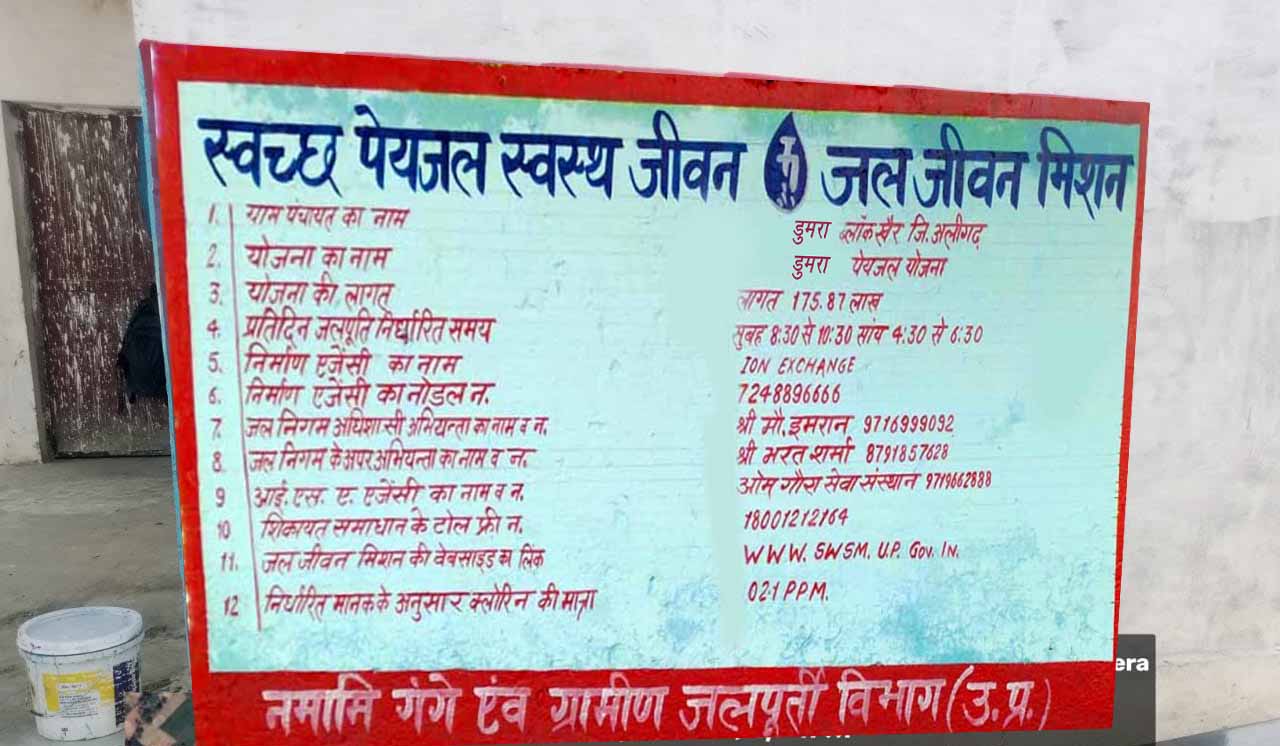 स्वच्छ पेयजल स्वस्थ जीवन जल जीवन मिशन
1. ग्राम पंचायत का नाम डुमरा ब्लॉक खैर जि. अलीगढ़
2. योजना का नाम डुमरा पेयजल योजना
3. योजना की लागत लागत 175.87 लाख
4. प्रतिदिन जलपूर्ति निर्धारित समय सुबह 8:30 से 10:30 सांय 4:30 से 6:30
5. निर्माण एजेंसी का नाम ION EXCHANGE
6. निर्माण एजेंसी का नोडल न. 7248896666
7. जल निगम अधिशासी अभियन्ता का नाम व न. श्री मौ. इमरान 9716999092
8. जल निगम के अपर अभियन्ता का नाम व न. श्री भरत शर्मा 8791857628
9 आई. एस. ए. एजेंसी का नाम व न. ओम गौरा सेवा संस्थान 9719662888
10 शिकायत समाधान के टोल फ्री न. 18001212164
11. जल जीवन मिशन की वेबसाइड का लिंक WWW. SWSM. U.P. Gov. In.
12 निर्धारित मानक के अनुसार क्लोरिन की मात्रा 02.1 PPM.
नमामि गंगे एंव ग्रामीण जलपूर्ती विभाग (उ. प्र.)